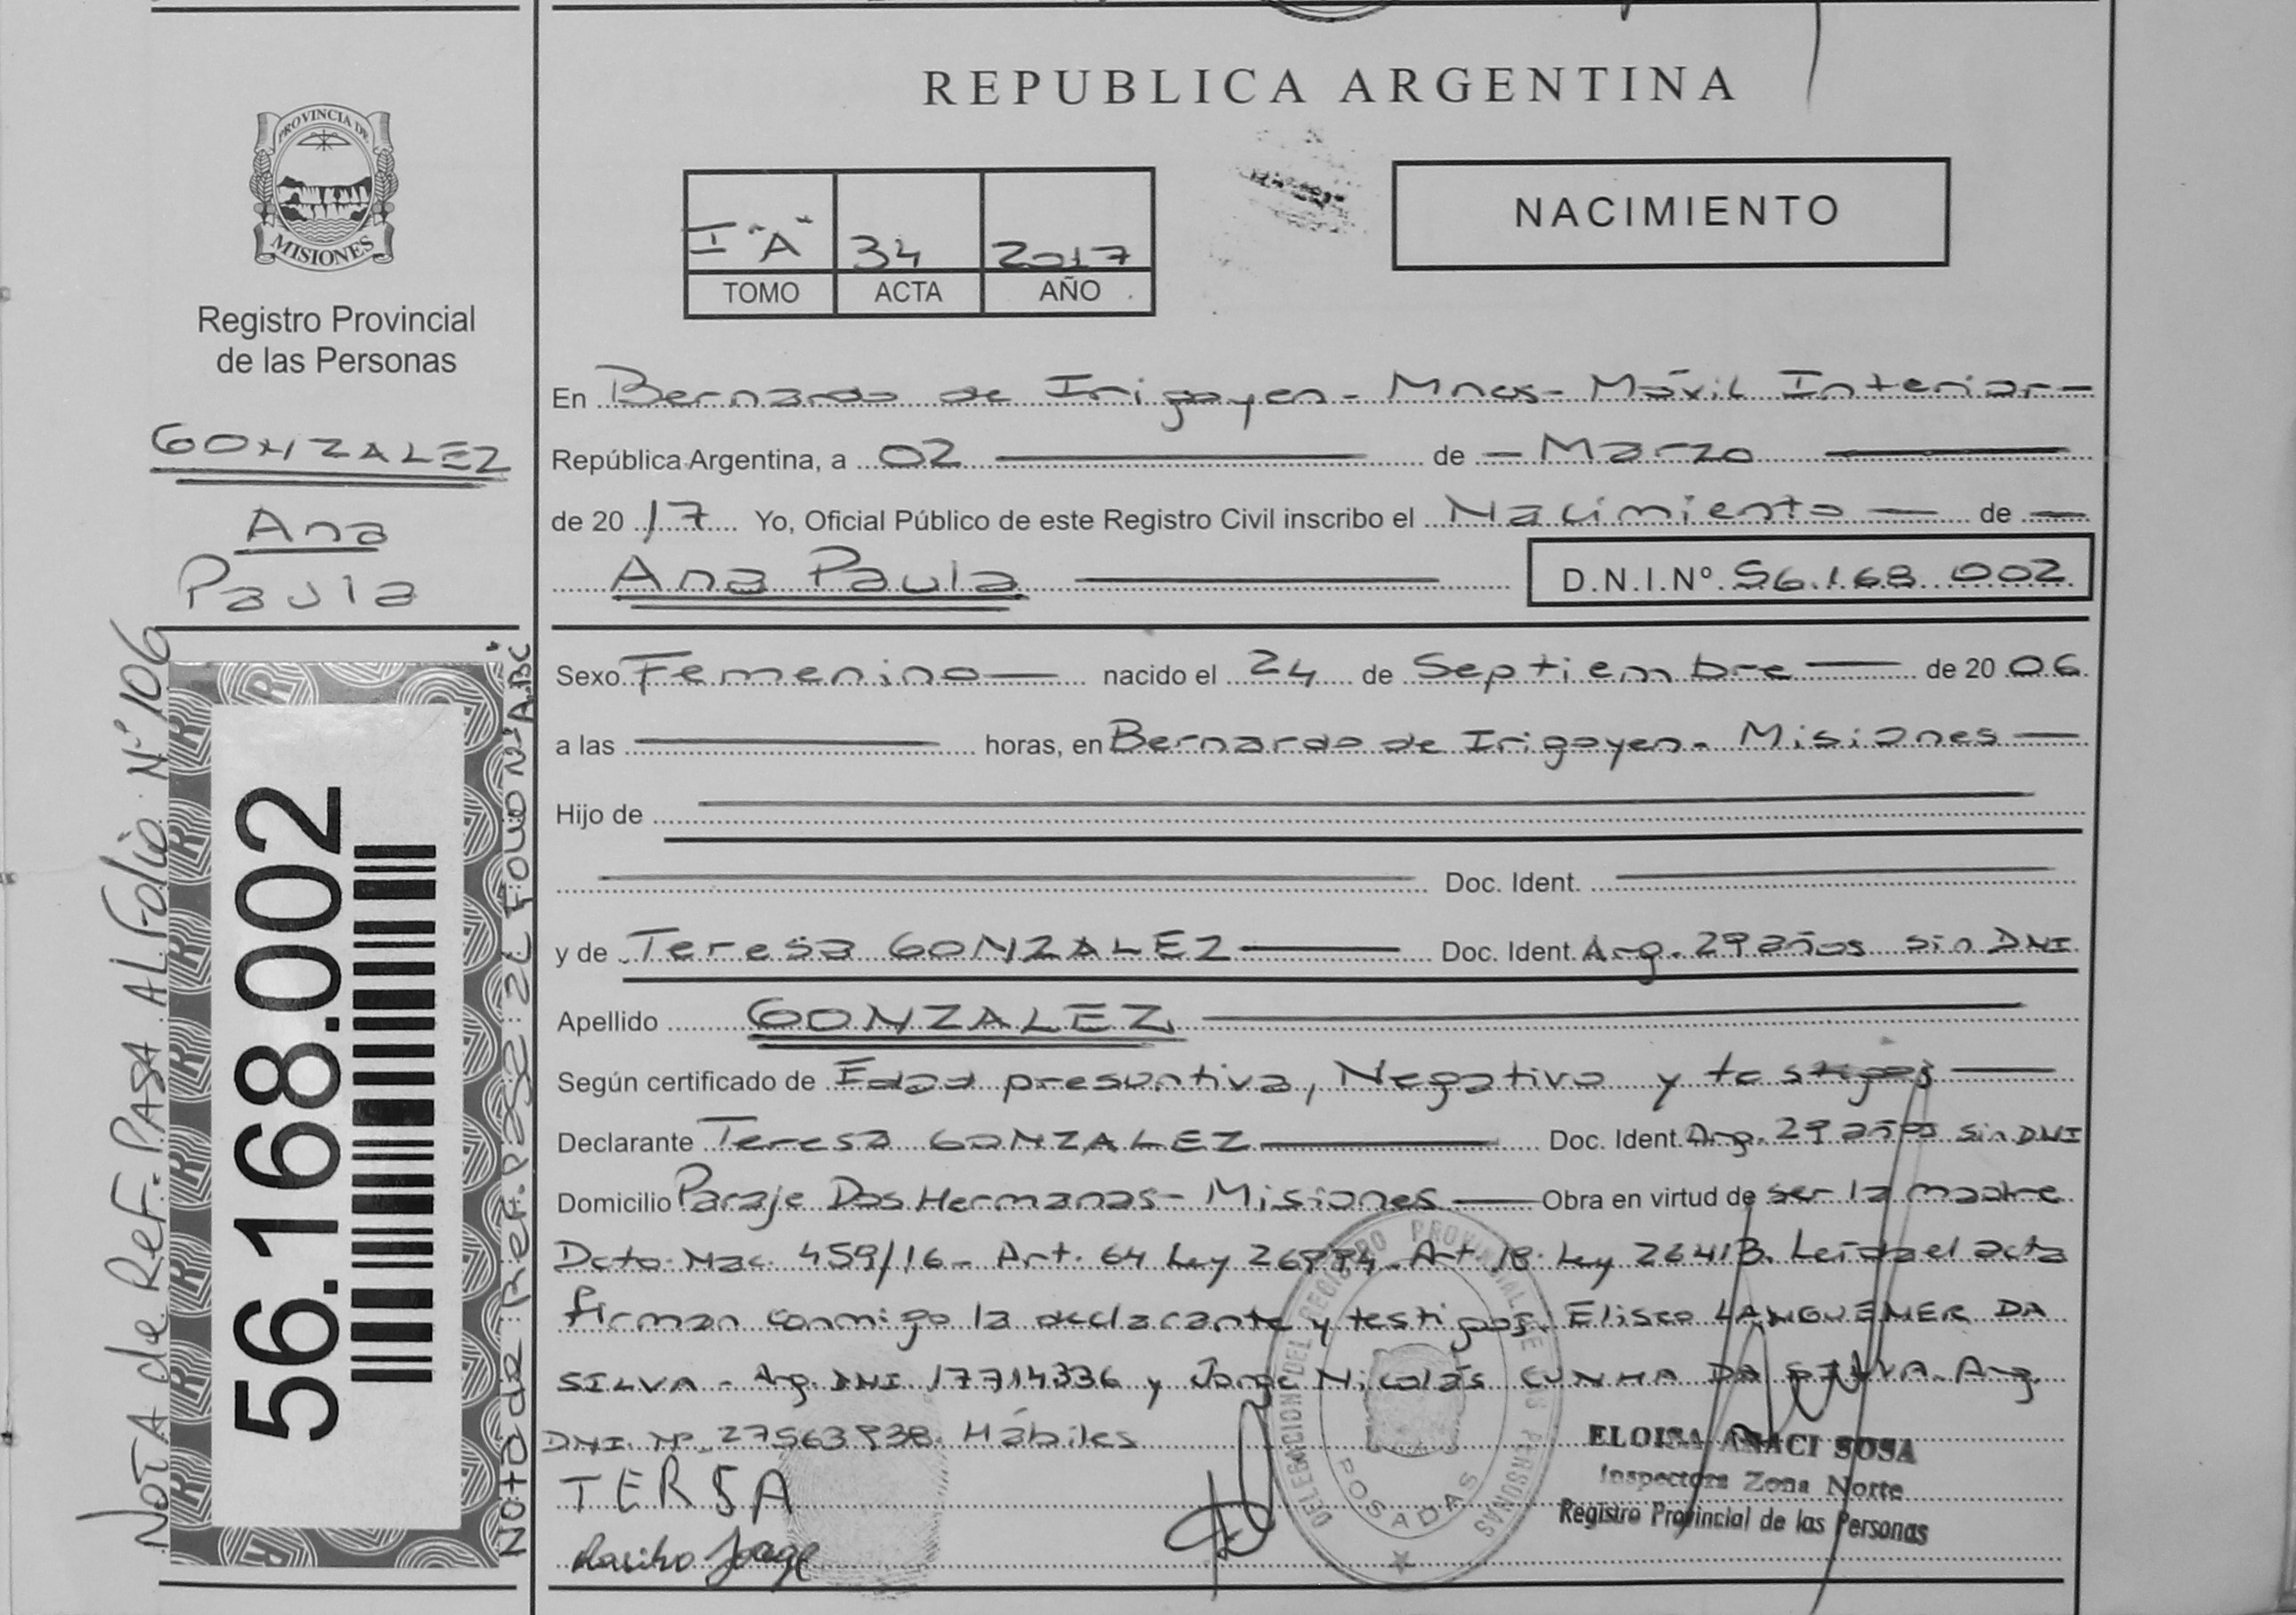 REPUBLICA ARGENTINA
PROVINCIA DE
MISIONES
Registro Provincial
de las Personas
GONZALEZ
Ana
Paula
NOTA de ReF. PASA AL Folio N° 106
Nota de Ref. pase: al FOLIO N° A.BC
56.168.002
I "A" 34 2017
TOMO ACTA AÑO
NACIMIENTO
En Bernardo de Irigoyen - Mnes - Móvil Interior
República Argentina, a 02 de Marzo
de 20 17 Yo, Oficial Público de este Registro Civil inscribo el Nacimiento de
Ana Paula D.N.I.Nº 56.168.002
Sexo Femenino nacido el 24 de Septiembre de 20 06
a las horas, en Bernardo de Irigoyen - Misiones
Hijo de
Doc. Ident.
y de Teresa GONZALEZ Doc. Ident. Arg. 29 años sin DNI
Apellido GONZALEZ
Según certificado de Edad presuntiva, Negativo y testigos
Declarante Teresa GONZALEZ Doc. Ident. Arg. 29 años sin DNI
Domicilio Paraje Dos Hermanas - Misiones Obra en virtud de ser la madre
Dcto. Nac. 459/16 - Art. 64 Ley 26994 - Art. 18 Ley 26413. Leída el acta
firman conmigo la declarante y testigos. Eliseo LANGUEMER DA
SILVA - Arg. DNI 17714336 y Jorge Nicolás CUNHA DA SILVA - Arg.
DNI Nº 27563938. Hábiles
TERSA
Jorge
DELEGACION DEL REGISTRO PROVINCIAL DE LAS PERSONAS
POSADAS
ELOISA ANACI SOSA
Inspectora Zona Norte
Registro Provincial de las Personas